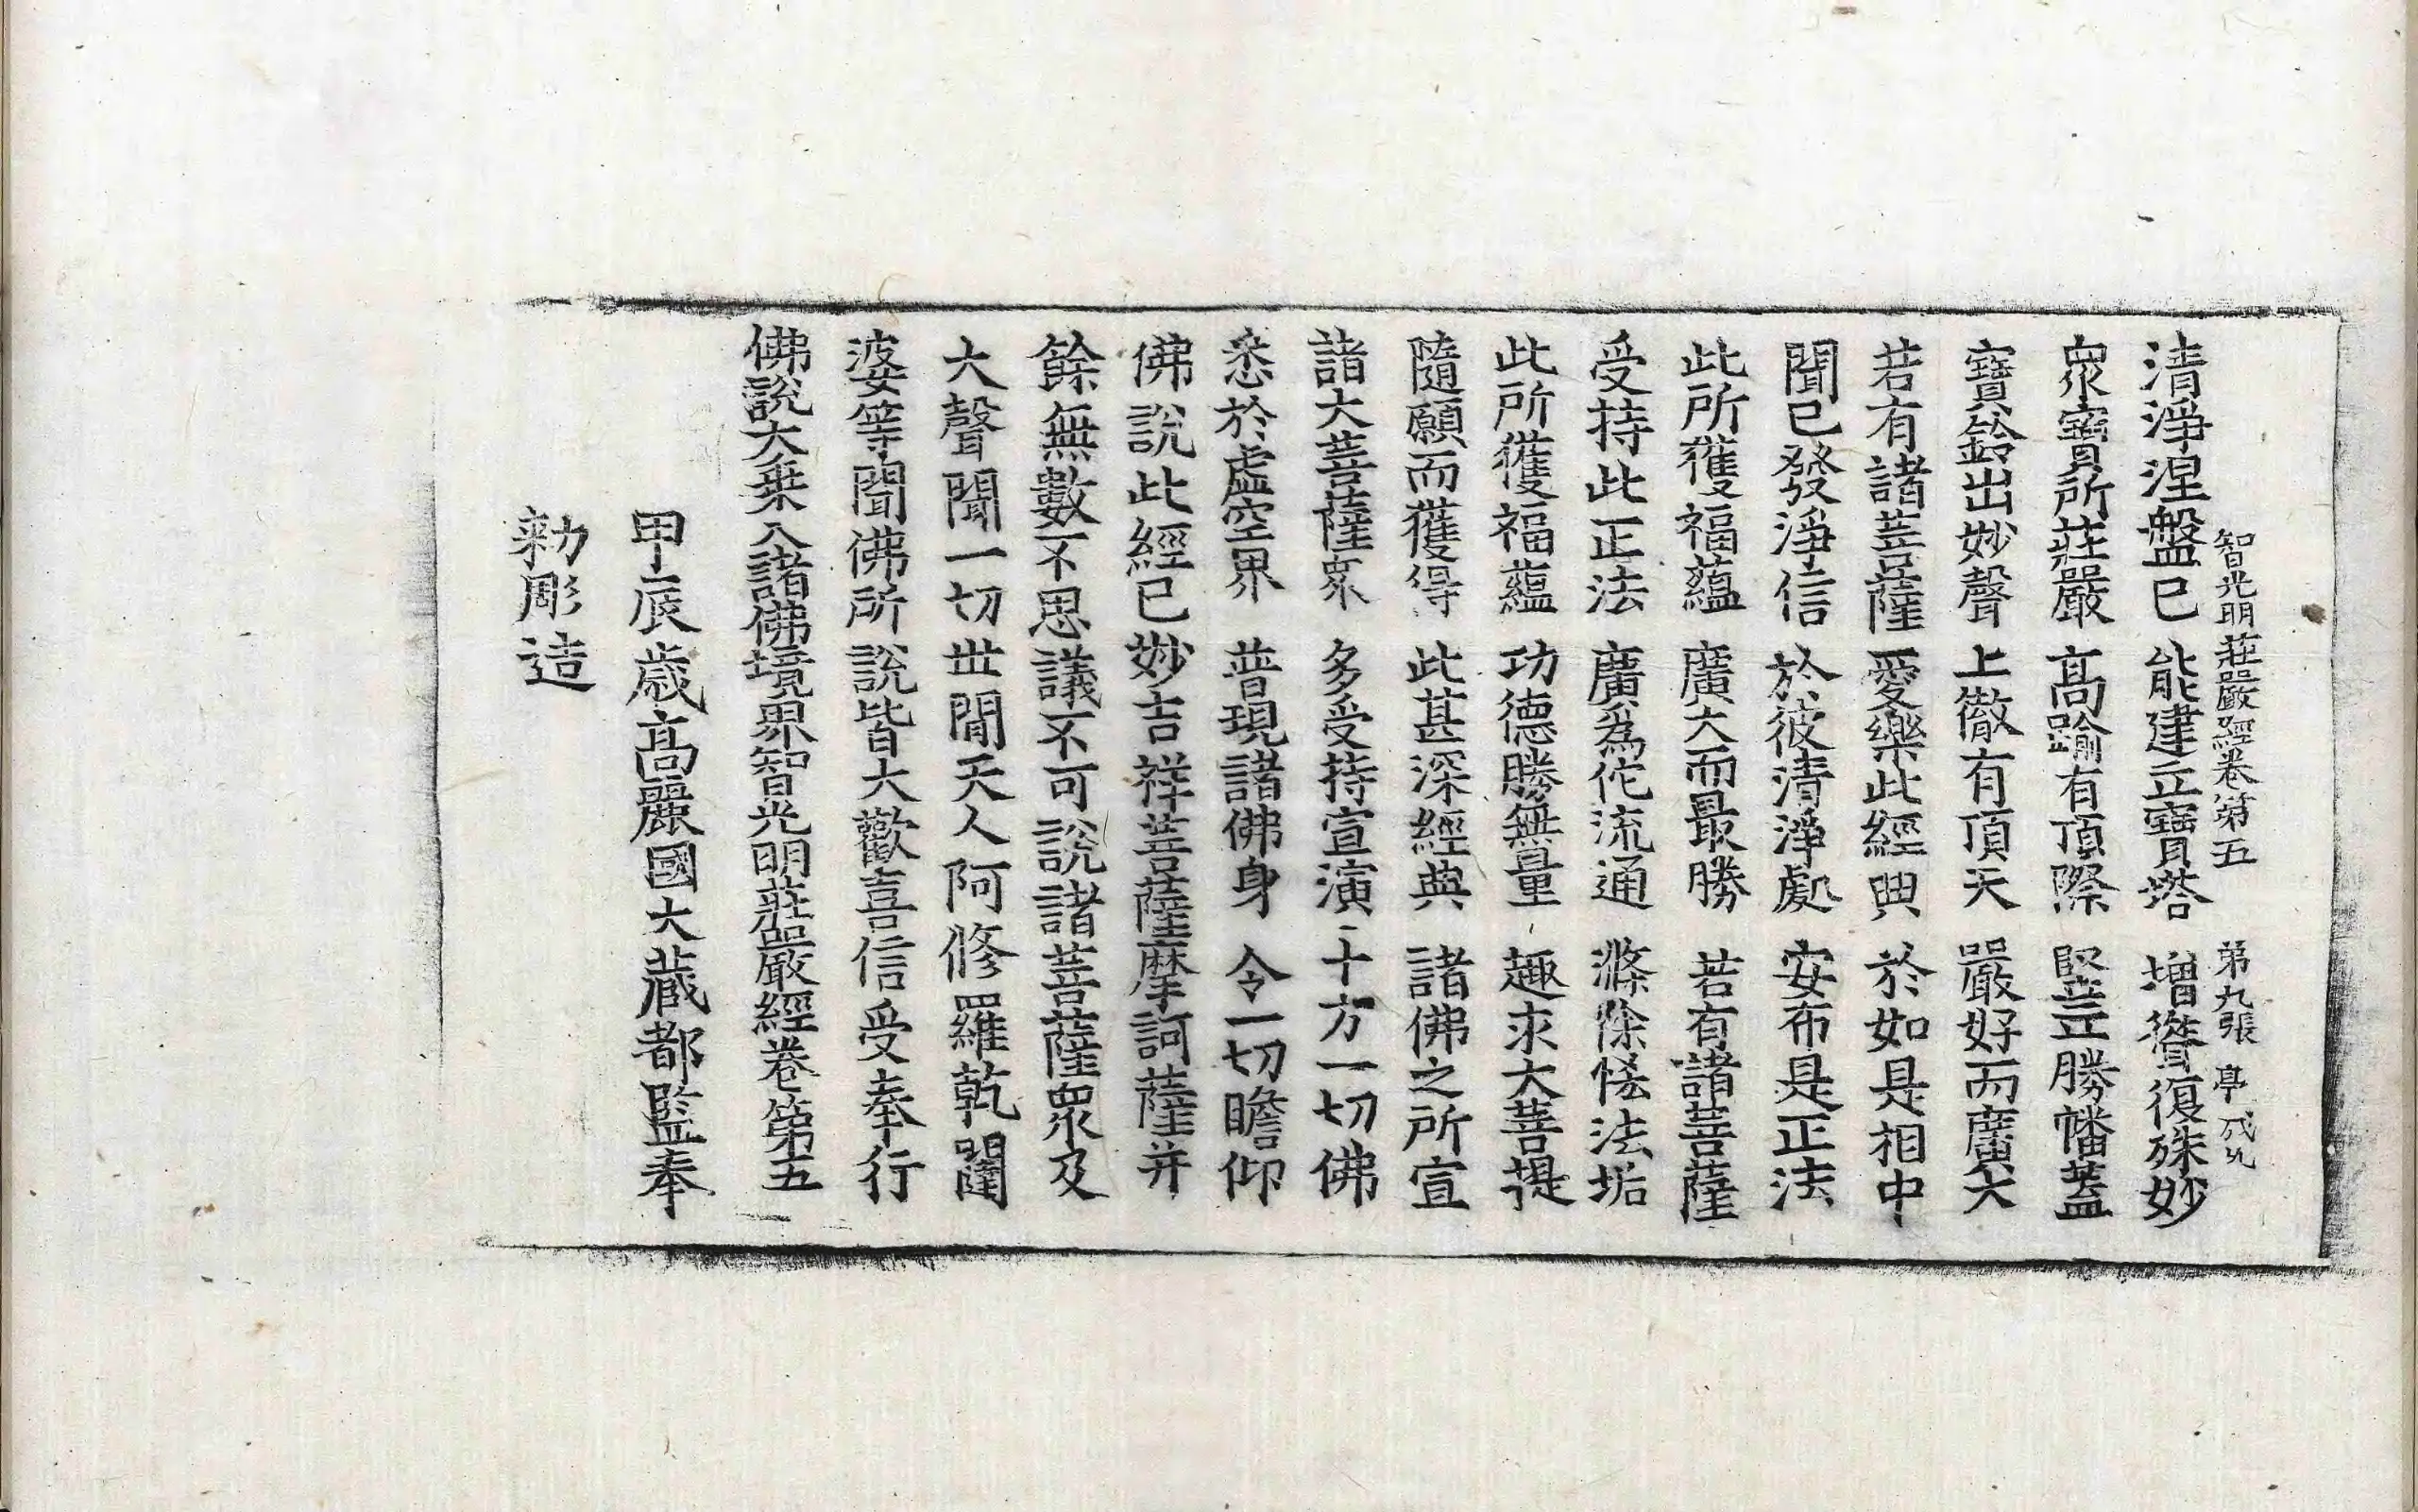 智光明莊嚴經卷第五 第九張 亭
清淨涅盤已 能建立寶塔 增聳復殊妙
衆寶所莊嚴 高踰有頂際 堅立勝幡蓋
寶鈴出妙聲 上徹有頂天 嚴好而廣大
若有諸菩薩 愛樂此經典 於如是相中
聞已發淨信 於彼清淨處 安布是正法
此所獲福蘊 廣大而最勝 若有諸菩薩
受持此正法 廣爲佗流通 滌除悋法垢
此所獲福蘊 功德勝無量 趣求大菩提
隨願而獲得 此甚深經典 諸佛之所宣
諸大菩薩衆 多受持宣演 十方一切佛
悉於虛空界 普現諸佛身 令一切瞻仰
佛說此經已妙吉祥菩薩摩訶薩并
餘無數不思議不可說諸菩薩衆及
大聲聞一切世間天人阿修羅乾闥
婆等聞佛所說皆大歡喜信受奉行
佛說大乗入諸佛境界智光明莊嚴經卷第五
甲辰歲高麗國大藏都監奉
勑彫造